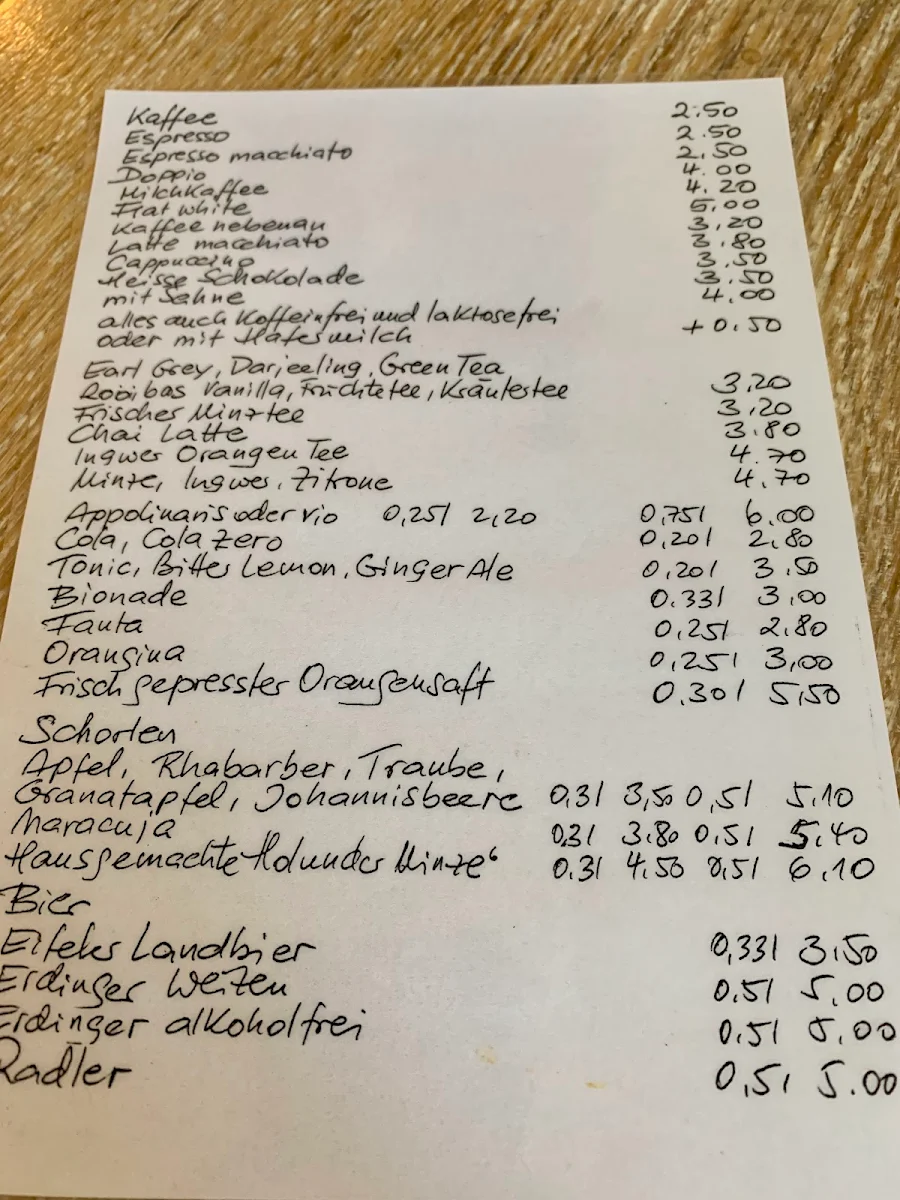 Kaffee 2.50
Espresso 2.50
Espresso macchiato 2,50
Doppio 4.00
Milchkaffee 4.20
Flat white 5,00
Kaffee nebenan 3,20
Latte macchiato 3.80
Cappuccino 3.50
Heisse Schokolade 3.50
mit Sahne 4.00
alles auch Koffeinfrei und laktosefrei + 0.50
oder mit Hafermilch
Earl Grey, Darjeeling, Green Tea
Rooibas Vanilla, Früchtetee, Kräutertee 3,20
Frischer Minztee 3,20
Chai Latte 3.80
Ingwer Orangen Tee 4.70
Minze, Ingwer, Zitrone 4.70
Appolinaris oder vio 0,25l 2,20 0,75l 6.00
Cola, Cola zero 0,20l 2,80
Tonic, Bitter Lemon, Ginger Ale 0,20l 3.50
Bionade 0.33l 3,00
Fanta 0,25l 2.80
Orangina 0,25l 3,00
Frisch gepresster Orangensaft 0.30l 5,50
Schorlen
Apfel, Rhabarber, Traube,
Granatapfel, Johannisbeere 0,3l 3,50 0,5l 5.10
Maracuja 0,3l 3.80 0,5l 5.40
Hausgemachte Holunder Minze 0.3l 4.50 0,5l 6.10
Bier
Eifeler Landbier 0,33l 3.50
Erdinger Weizen 0.5l 5.00
Erdinger alkoholfrei 0,5l 5.00
Radler 0,5l 5.00